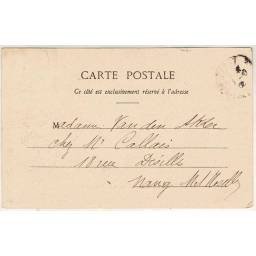 CARTE POSTALE
Ce côté est exclusivement réservé à l'adresse
Madame Van den
chez Mr Callais
18 rue Déville
Nancy